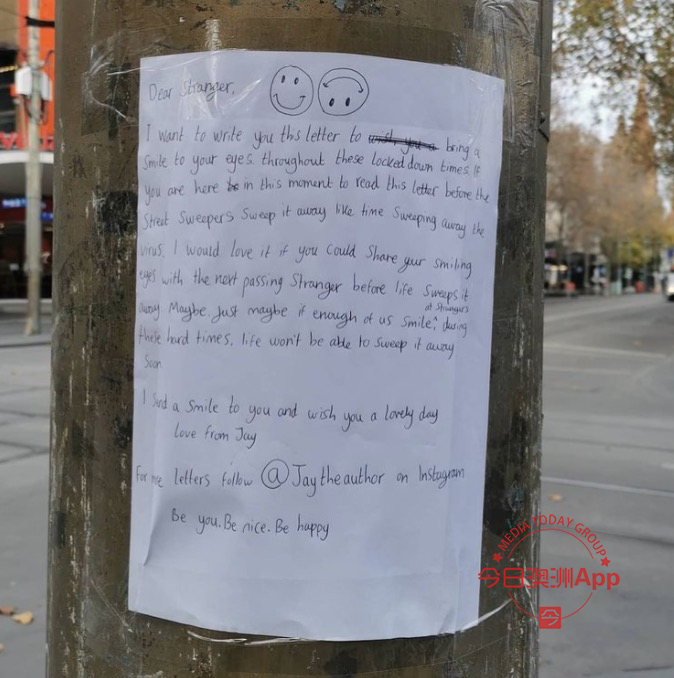 Dear Stranger,
I want to write you this letter to wish you a bring a
smile to your eyes throughout these locked down times. If
you are here in this moment to read this letter before the
street sweepers sweep it away like time sweeping away the
virus. I would love it if you could share your smiling
eyes with the next passing stranger before life sweeps it
away. Maybe, just maybe if enough of us smile at strangers during
these hard times, life won't be able to sweep it away
soon
I send a smile to you and wish you a lovely day
love from Jay
For more letters follow @Jaytheauthor on Instagram
Be you. Be nice. Be happy
MEDIA TODAY GROUP
今日澳洲App
今